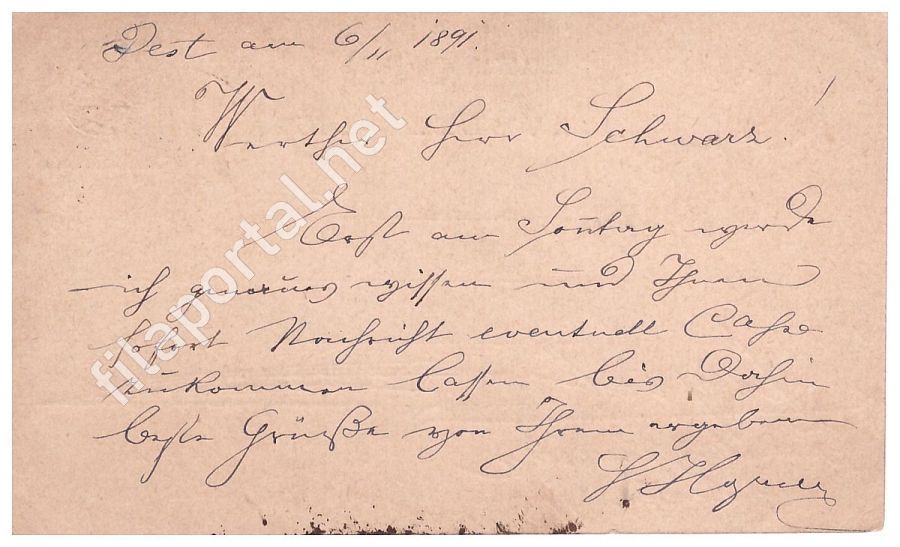 Pest am 6/11 1891.
Werther Herr Schwarz!
Erst am Sonntag werde
ich genaues wissen und Ihnen
sofort Nachricht eventuell Cassa
zukommen lassen bis Dahin
beste Grüße von Ihrem ergebenen
filaportal.net